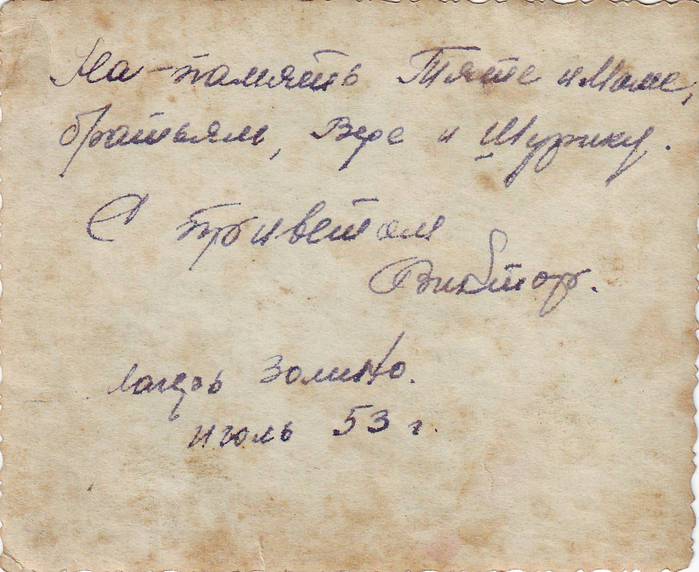 На-память Тяте и Маме,
братьям, Вере и Шурику.
С приветом
Виктор.
лагерь Золино.
июль 53 г.